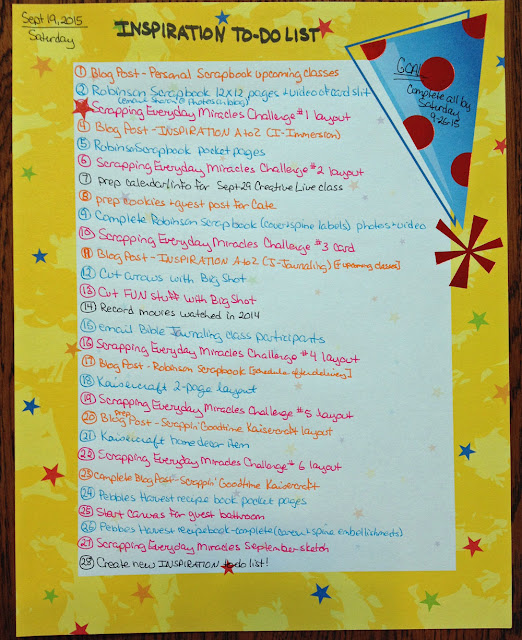 Sept 19, 2015
Saturday
INSPIRATION TO-DO LIST
GOAL
Complete all by
Saturday
9-26-15
1 Blog Post - Personal Scrapbook upcoming classes
2 Robinson Scrapbook 12x12 pages + video of card slit
(email Sharon @ photos on blog)
3 Scrapping Everyday Miracles Challenge #1 layout
4 Blog Post - INSPIRATION A to Z (I-Immersion)
5 Robinson Scrapbook pocket pages
6 Scrapping Everyday Miracles Challenge #2 layout
7 Prep calendar/info for Sept 29 Creative Live class
8 prep cookies + guest post for Cate
9 Complete Robinson Scrapbook (cover + spine labels) photos + video
10 Scrapping Everyday Miracles Challenge #3 card
11 Blog Post - INSPIRATION A to Z (I-Journaling) [+ upcoming classes]
12 Cut arrows with Big Shot
13 Cut FUN stuff with Big Shot
14 Record movies watched in 2014
15 email Bible Journaling class participants
16 Scrapping Everyday Miracles Challenge #4 layout
17 Blog Post - Robinson Scrapbook [schedule after delivery]
18 Kaisercraft 2-page layout
19 Scrapping Everyday Miracles Challenge #5 layout
20 Blog Prep Post - Scrappin' Goodtime Kaisercraft layout
21 Kaisercraft home decor item
22 Scrapping Everyday Miracles Challenge #6 layout
23 Complete Blog Post - Scrappin' Goodtime Kaisercraft
24 Pebbles Harvest recipe book pocket pages
25 Start canvas for guest bathroom
26 Pebbles Harvest recipe book - complete (cover + spine embellishments)
27 Scrapping Everyday Miracles September sketch
28 Create new INSPIRATION to do list!